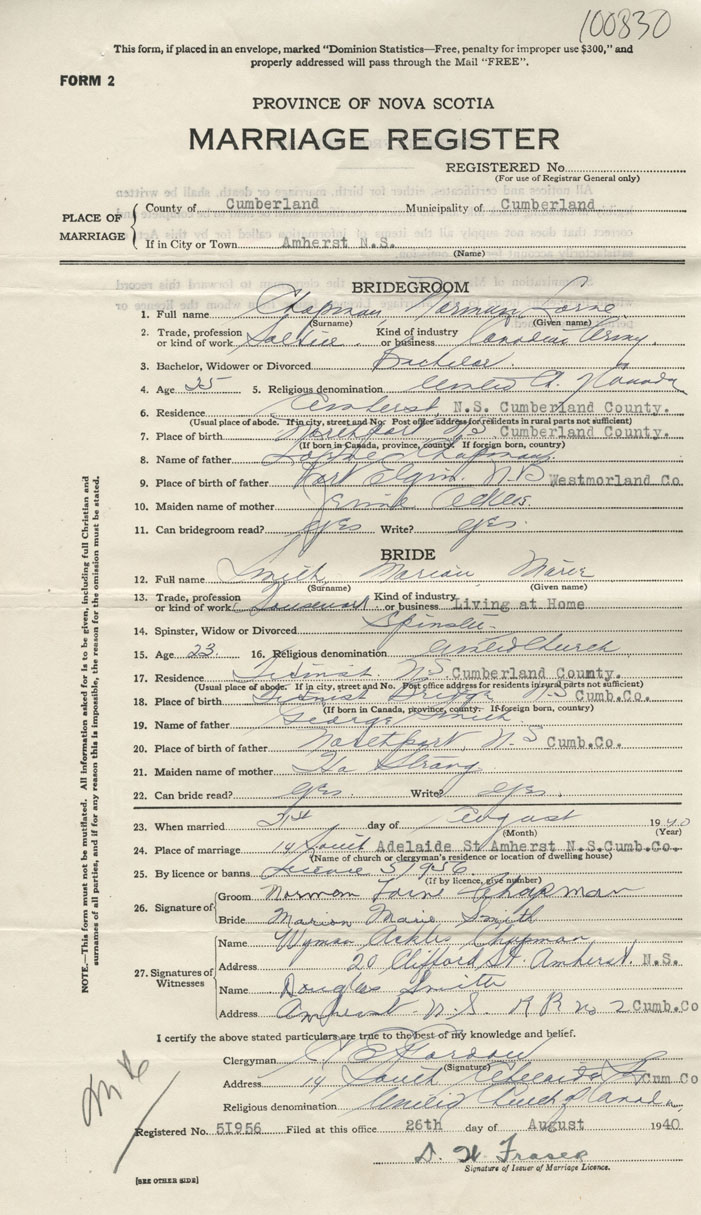 100830
This form, if placed in an envelope, marked "Dominion Statistics—Free, penalty for improper use $300," and
properly addressed will pass through the Mail "FREE".
FORM 2
PROVINCE OF NOVA SCOTIA
MARRIAGE REGISTER
REGISTERED No
(For use of Registrar General only)
PLACE OF MARRIAGE
County of Cumberland Municipality of Cumberland
If in City or Town Amherst N.S.
(Name)
BRIDEGROOM
1. Full name Chapman Norman Lorne
(Surname) (Given name)
2. Trade, profession or kind of work Kind of industry or business Canadian Army
3. Bachelor, Widower or Divorced Bachelor
4. Age 25 5. Religious denomination United Ch. Canada
6. Residence Amherst, N.S. Cumberland County.
(Usual place of abode. If in city, street and No. Post office address for residents in rural parts not sufficient)
7. Place of birth Northport N.S. Cumberland County.
(If born in Canada, province, county. If foreign born, country)
8. Name of father Chapman
9. Place of birth of father Port Elgin N.B Westmorland Co
10. Maiden name of mother
11. Can bridegroom read? yes Write? yes.
BRIDE
12. Full name Smith Marian Marie
(Surname) (Given name)
13. Trade, profession or kind of work Housework Kind of industry or business Living at Home
14. Spinster, Widow or Divorced Spinster
15. Age 23 16. Religious denomination United Church
17. Residence Tidnish N.S Cumberland County.
(Usual place of abode. If in city, street and No. Post office address for residents in rural parts not sufficient)
18. Place of birth Tidnish Bridge N.S Cumb.Co.
(If born in Canada, province, county. If foreign born, country)
19. Name of father George Smith
20. Place of birth of father Northport, N.S Cumb.Co.
21. Maiden name of mother Strang
22. Can bride read? yes. Write? yes.
23. When married day of August 1940
(Month) (Year)
24. Place of marriage 14 South Adelaide St Amherst N.S.Cumb.Co.
(Name of church or clergyman's residence or location of dwelling house)
25. By licence or banns License 51956
(If by licence, give number)
26. Signature of
Groom Norman Lorne Chapman
Bride Marion Marie Smith
27. Signatures of Witnesses
Name Wyman Chapman
Address 20 Clifford St. Amherst. N.S.
Name Douglas Smith
Address Amherst N.S. R R no 2 Cumb.Co
I certify the above stated particulars are true to the best of my knowledge and belief.
Clergyman Gordon
(Signature)
Address 14 South Adelaide St Cum Co
Religious denomination United Church of Canada
Registered No. 51956 Filed at this office 26th day of August 1940
D. W. Fraser
Signature of Issuer of Marriage Licence.
[SEE OTHER SIDE]
NOTE.—This form must not be mutilated. All information asked for is to be given, including full Christian and
surnames of all parties, and if for any reason this is impossible, the reason for the omission must be stated.